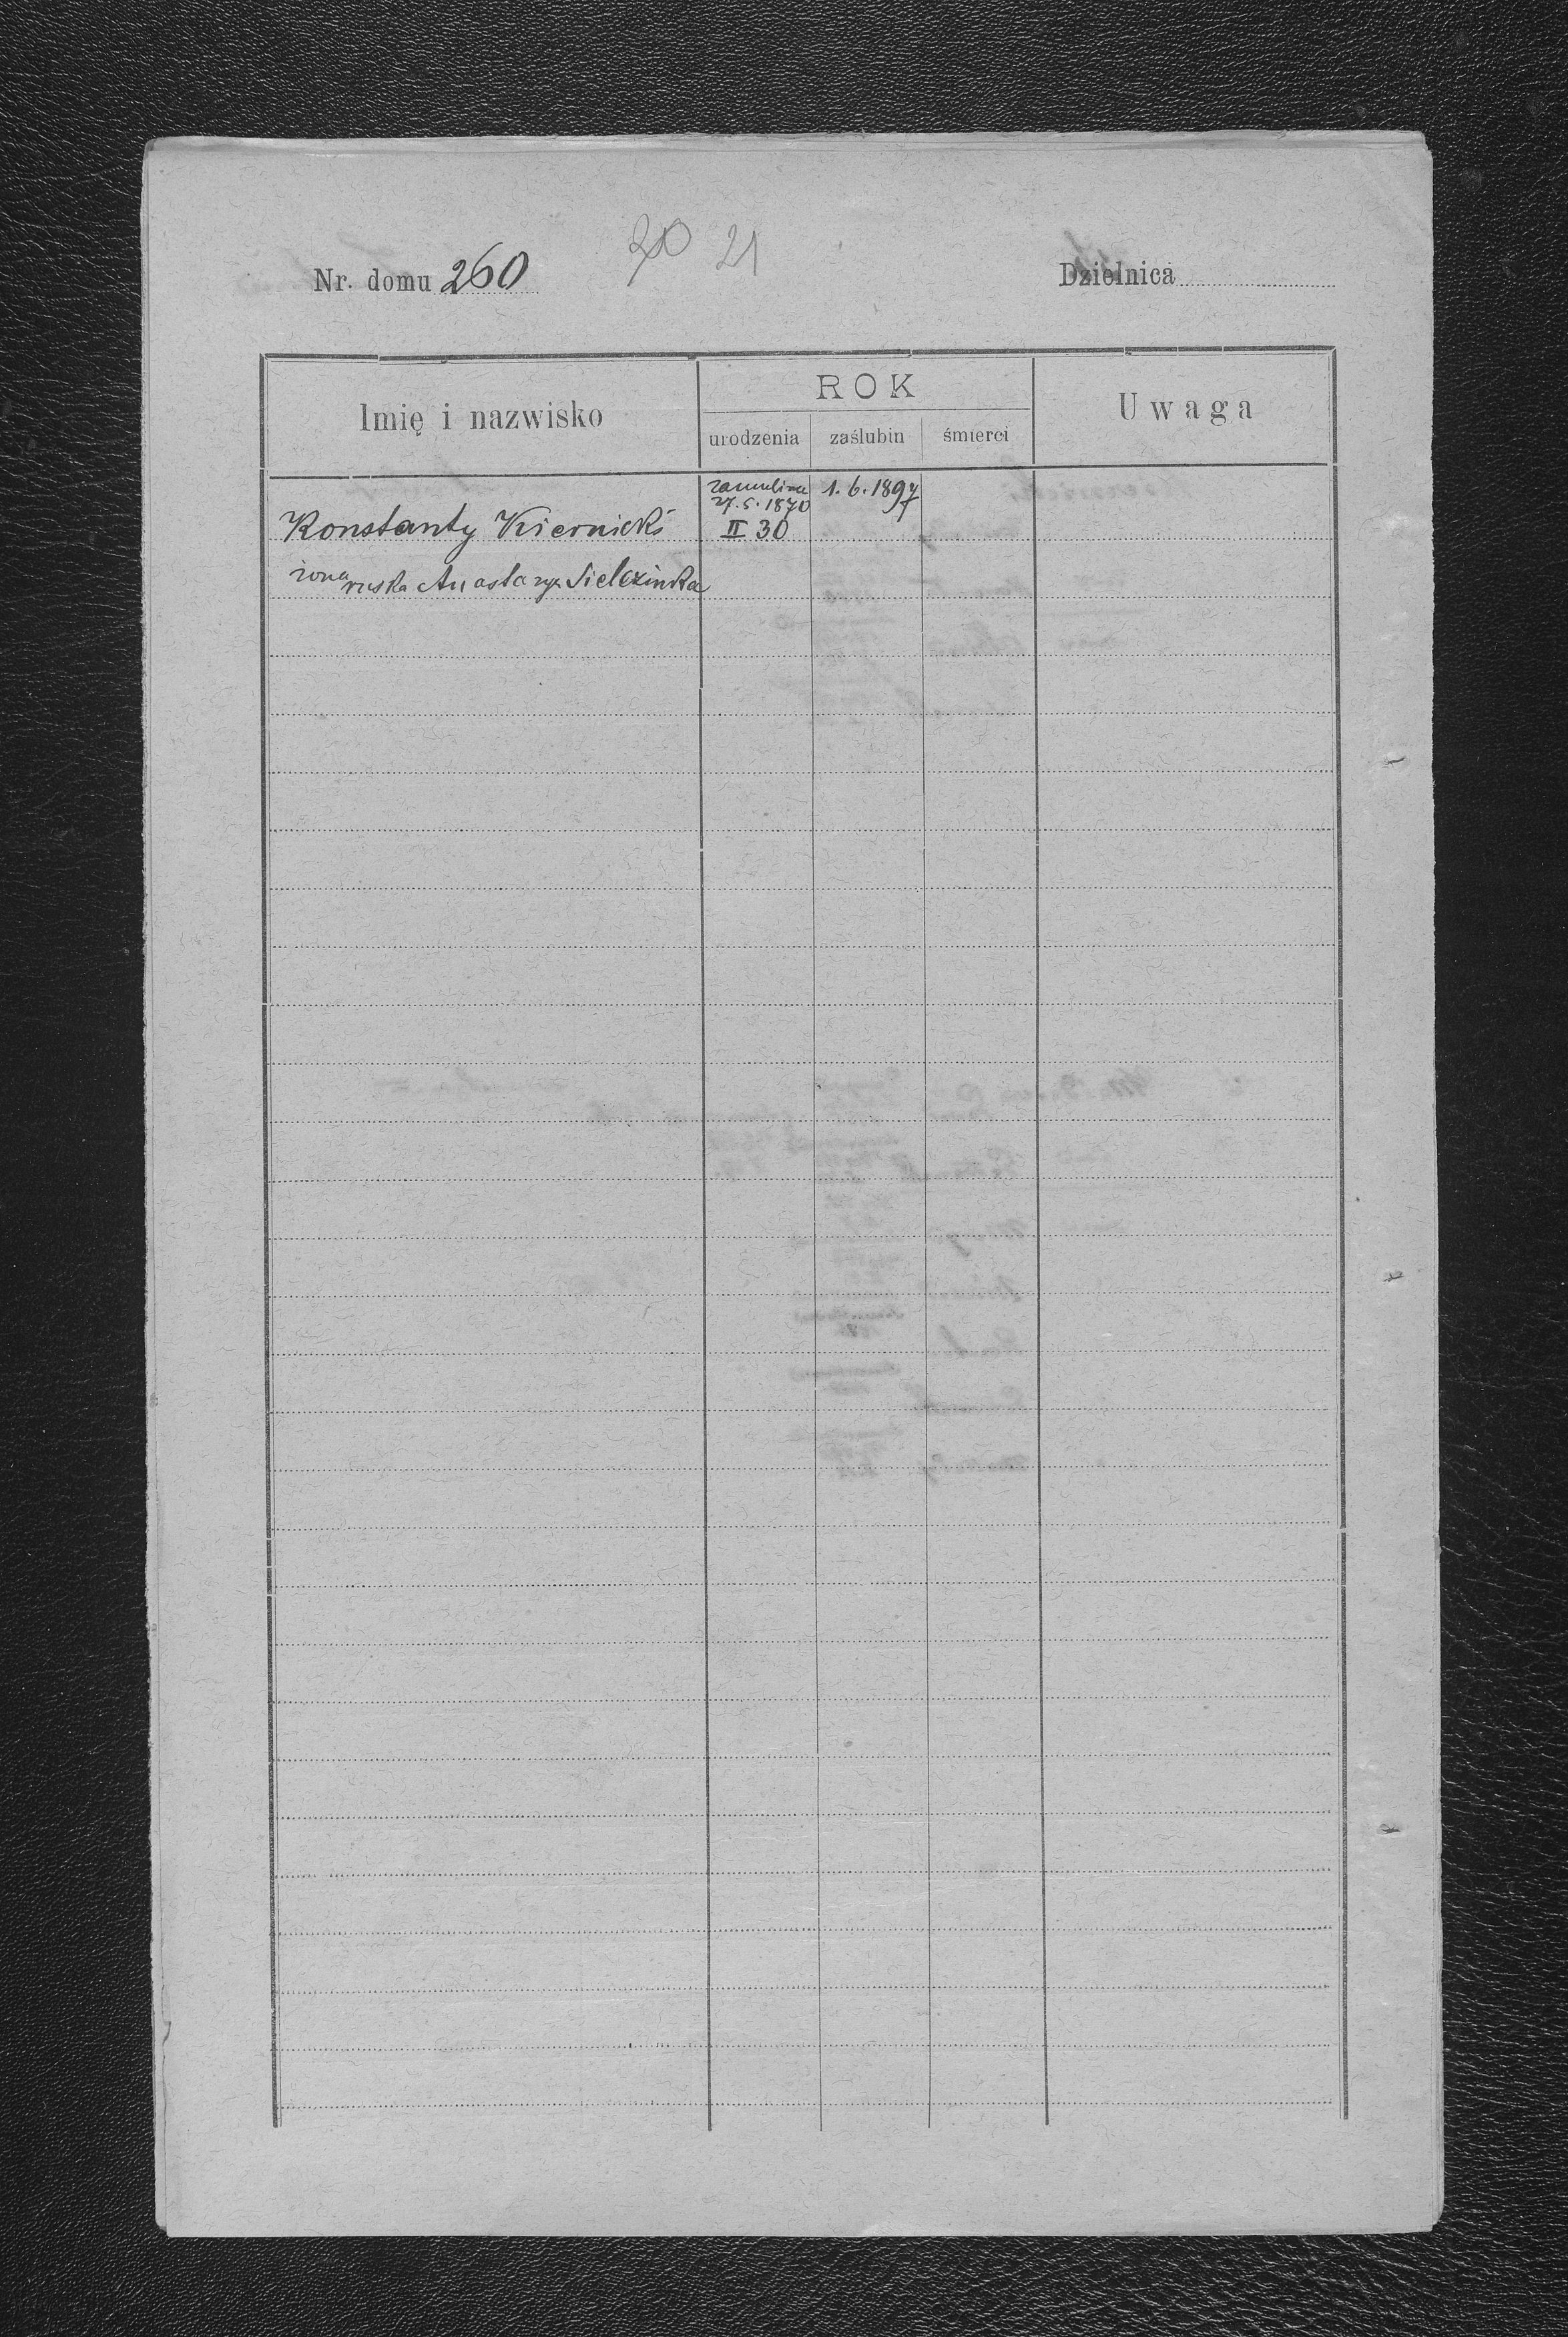 Nr. domu 260
20 21
Dzielnica
Imię i nazwisko
ROK
Uwaga
urodzenia zaślubin śmierci
27.5.1870 1.6.1897
Konstanty Kiernicki II 30
żona ruska Anastazya Sielezinska